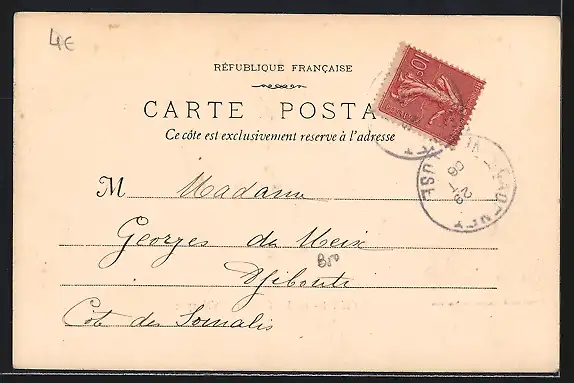 4€
RÉPUBLIQUE FRANÇAISE
CARTE POSTA
Ce côté est exclusivement reserve à l'adresse
M Madame
Georges de Meix
Bro
Djibouti
Côte des Somalis